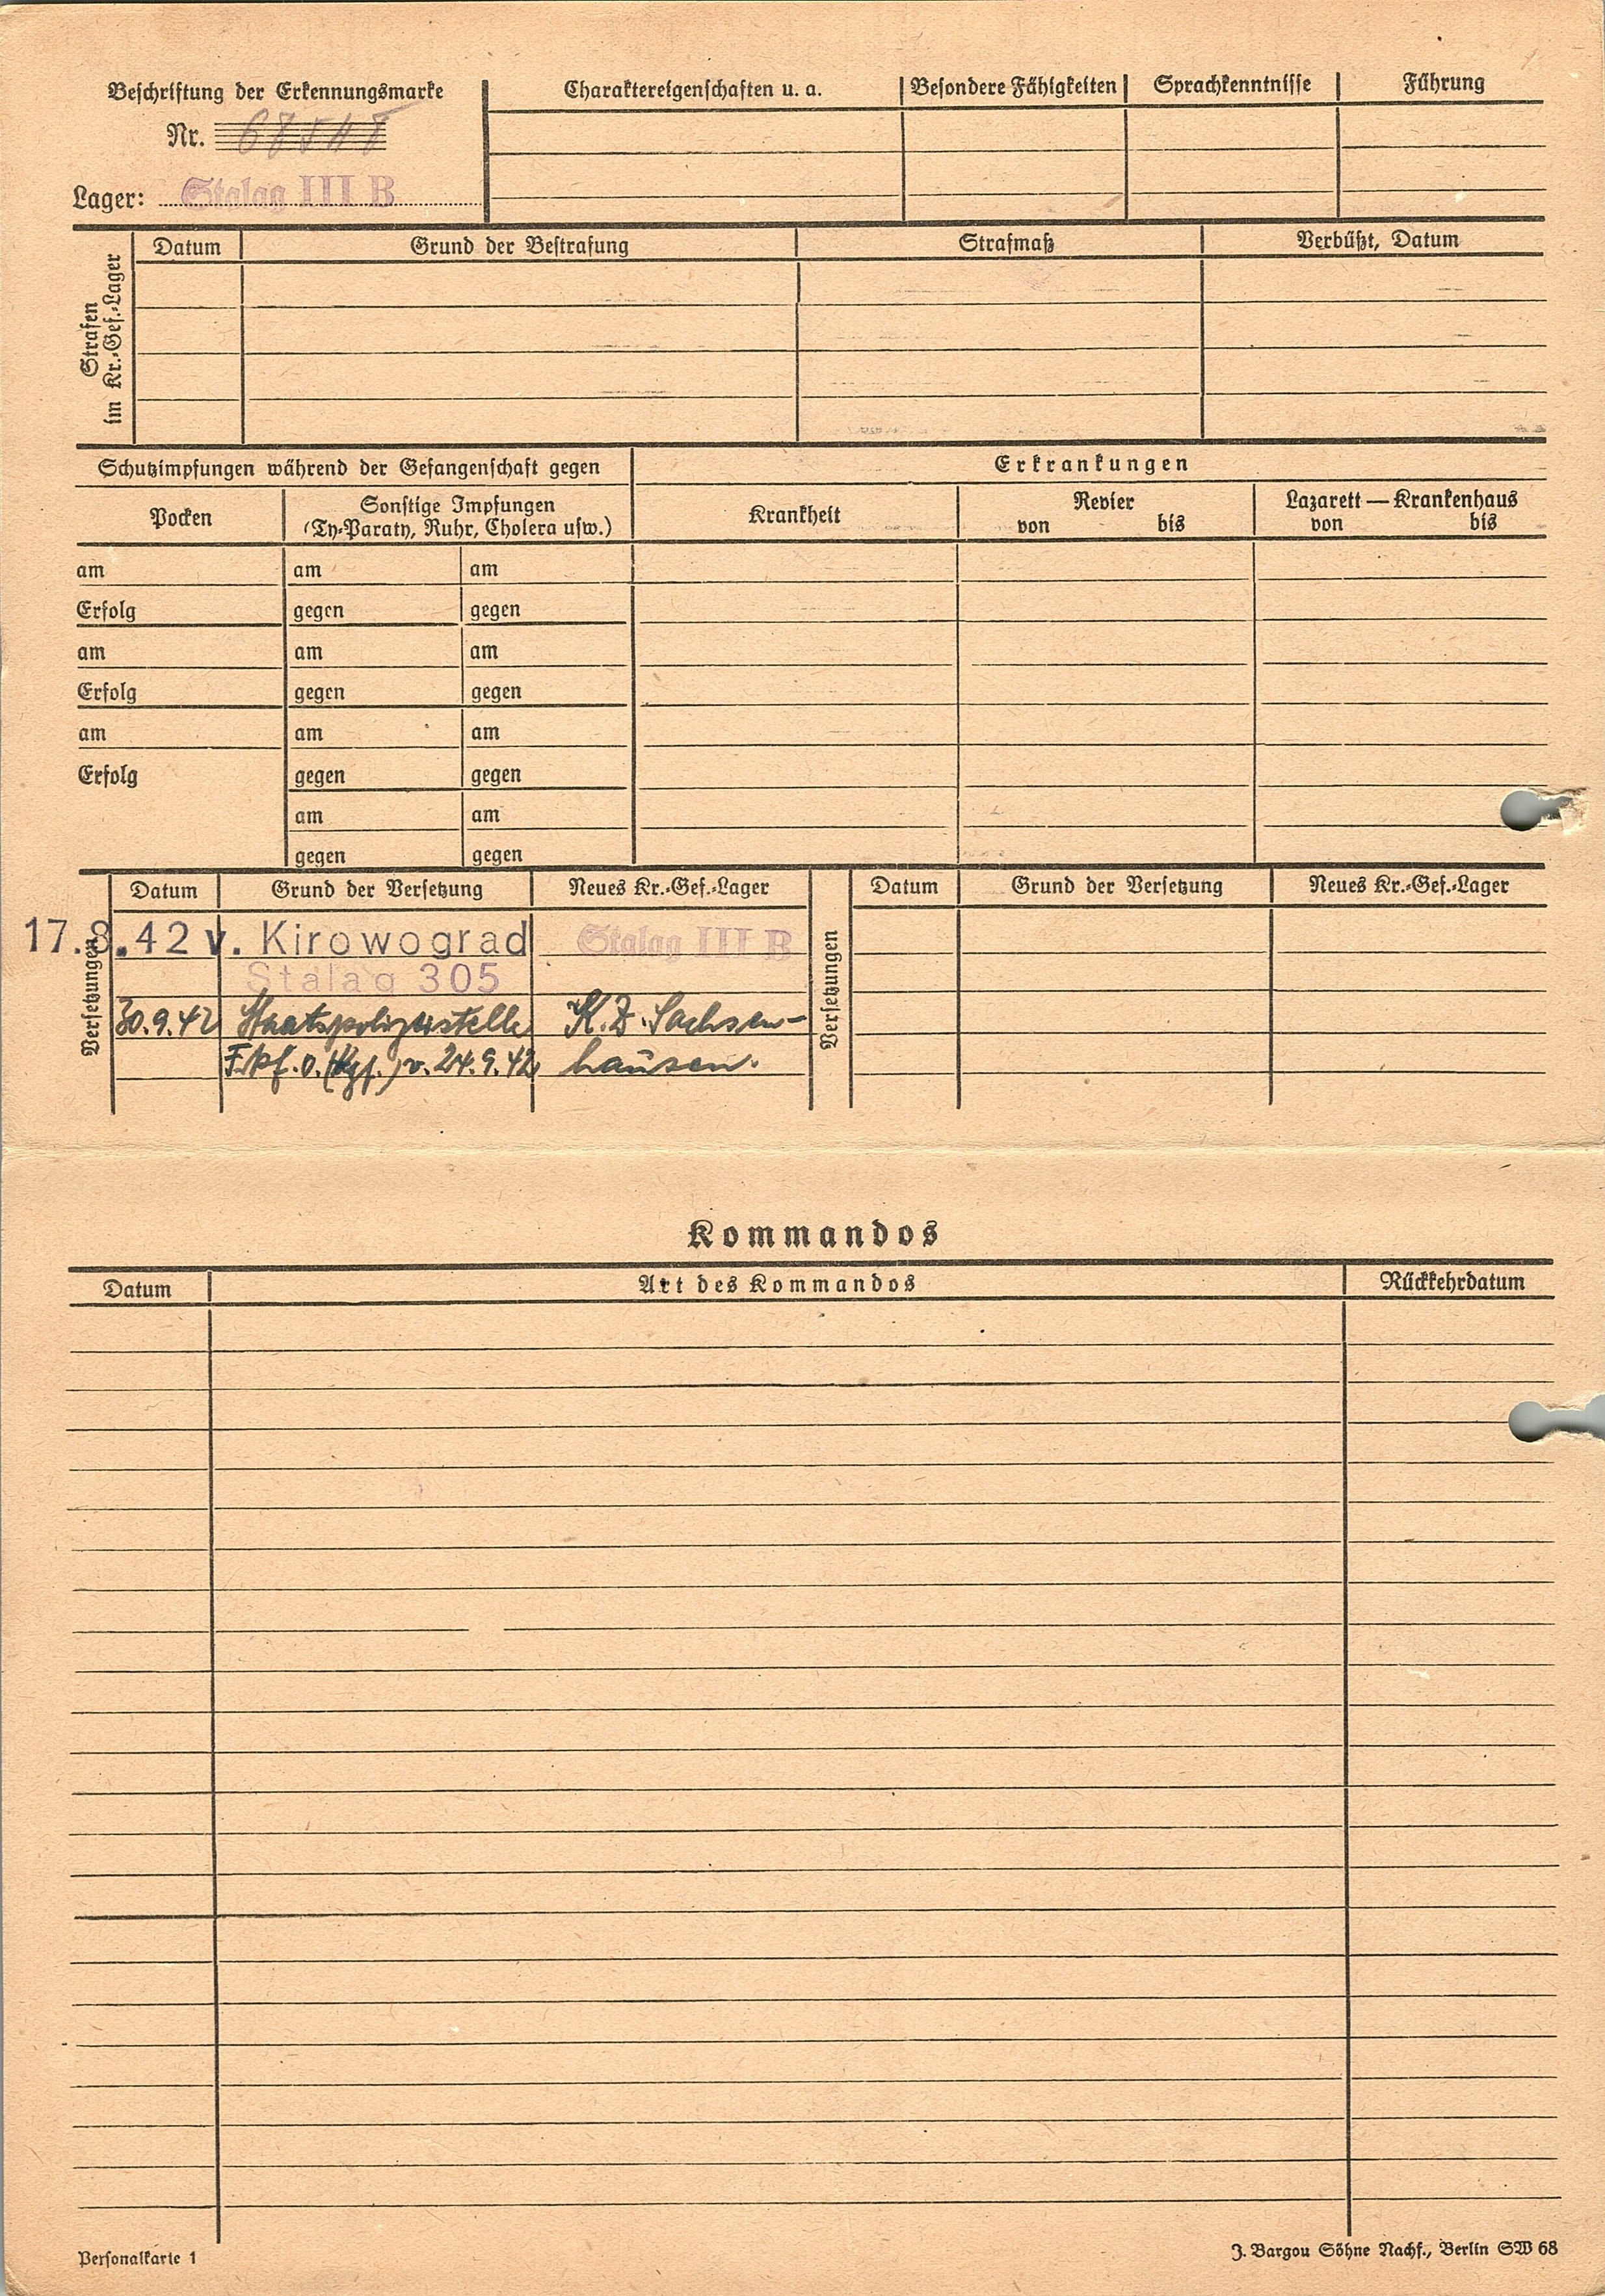 Beschriftung der Erkennungsmarke
Nr. 68548
Lager: Stalag III B
Charaktereigenschaften u. a. Besondere Fähigkeiten Sprachkenntnisse Führung
Strafen
im Kr.-Gef.-Lager
Datum Grund der Bestrafung Strafmaß Verbüßt, Datum
Schutzimpfungen während der Gefangenschaft gegen
Erkrankungen
Pocken
Sonstige Impfungen
(Ty-Paraty, Ruhr, Cholera usw.)
Krankheit
Revier
von bis
Lazarett — Krankenhaus
von bis
am am am
Erfolg gegen gegen
am am am
Erfolg gegen gegen
am am am
Erfolg gegen gegen
am am
gegen gegen
Versetzungen
Datum Grund der Versetzung Neues Kr.-Gef.-Lager
17.8.42 v. Kirowograd Stalag III B
Stalag 305
30.9.42 Staatspolizeistelle K.Z. Sachsen-
Frkf. O. (Kgf.) v. 24.9.42 hausen.
Versetzungen
Datum Grund der Versetzung Neues Kr.-Gef.-Lager
Kommandos
Datum Art des Kommandos Rückkehrdatum
Personalkarte 1
J. Bargou Söhne Nachf., Berlin SW 68